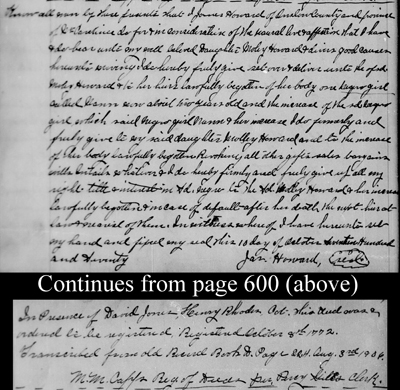 Know all men by these presents that I James Howard of Onslow County and province
of No Carolina do for & in consideration of the natural love & affection that I have
& do bear unto my well beloved Daughter Motey Howard & divers good causes
hereunto moving I do hereby freely give set over & deliver unto the sd
Motey Howard & to her heirs lawfully begotten of her body one negro girl
called Dann now about two years old and the increase of the sd negro
girl which said negro girl Dann & her increase I do firmly and
freely give to my said daughter Motley Howard and to the increase
of her body lawfully begotten Revoking all other gifts sales bargains
wills entails whatever & I do hereby firmly and freely give up all my
right title & interest in sd. negro to the sd Motley Howard & her increase
lawfully begotten & in case of default after her death the next heirs at
law & survival of them. In witness whereof I have hereunto set
my hand and fixed my seal this 10 day of October seventeen hundred
and seventy Jas Howard, (seal)
Continues from page 600 (above)
In Presence of David Jones Henry Rhodes Oct. This deed was
ordered to be registered Registered October 8th 1772.
Transcribed from old Record Book D. Page 284. Aug. 3rd 1904.
M.M. Capps Reg of Deeds Per Perry Clerk.